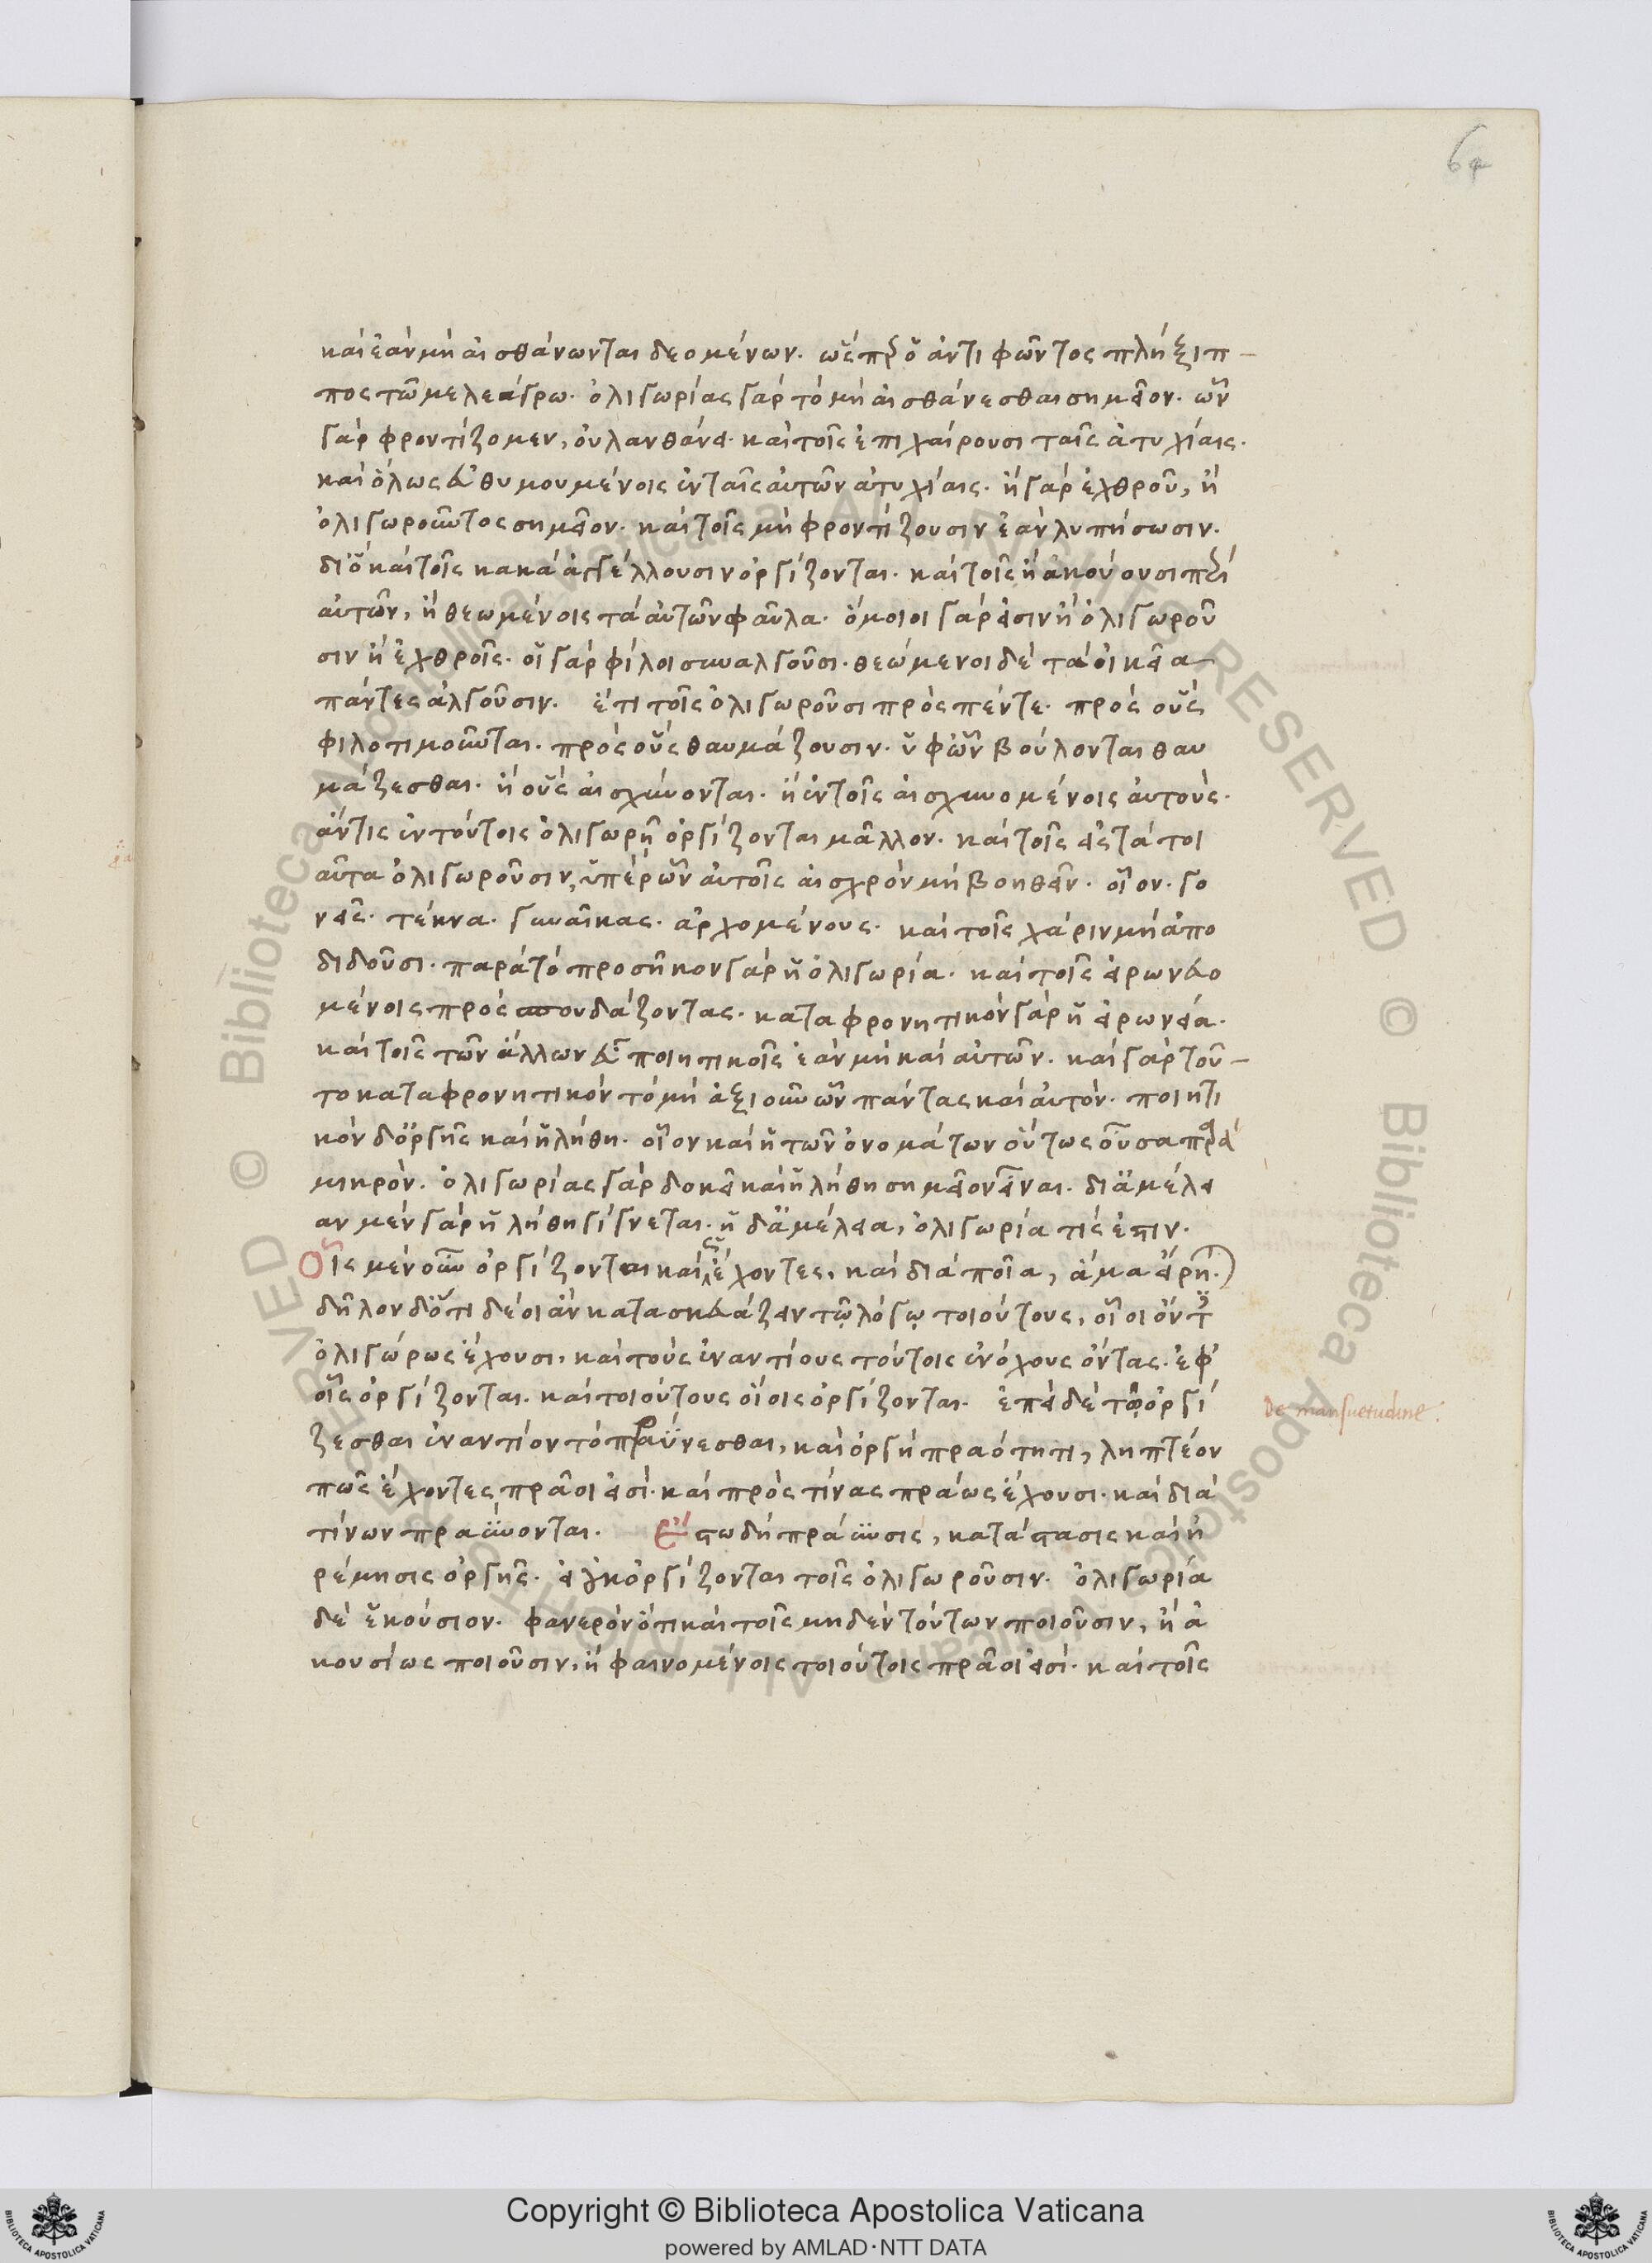 64
καὶ ἐὰν μὴ αἰσθάνωνται δεομένων. ὥσπερ ὁ ἀντιφῶντος πλήξιπ-
πος τῶ μελεάγρω. ὀλιγωρίας γὰρ τὸ μὴ αἰσθάνεσθαι σημεῖον. ὧν
γὰρ φροντίζομεν, οὐ λανθάνει. καὶ τοῖς ἐπιχαίρουσι ταῖς ἀτυχίαις.
καὶ ὅλως εὐθυμουμένοις ἐν ταῖς αὐτῶν ἀτυχίαις. ἢ γὰρ ἐχθροῦ, ἢ
ὀλιγωροῦντος σημεῖον. καὶ τοῖς μὴ φροντίζουσιν ἐὰν λυπήσωσιν.
διὸ καὶ τοῖς κακὰ ἀγγέλλουσιν ὀργίζονται. καὶ τοῖς ἢ ἀκούουσι περὶ
αὐτῶν, ἢ θεωμένοις τὰ αὐτῶν φαῦλα. ὅμοιοι γάρ εἰσιν ἢ ὀλιγωροῦ
σιν ἢ ἐχθροῖς. οἱ γὰρ φίλοι συναλγοῦσι. θεώμενοι δὲ τὰ οἰκεῖα-
πάντες ἀλγοῦσιν. ἔτι τοῖς ὀλιγωροῦσι πρὸς πέντε. πρὸς οὓς
φιλοτιμοῦνται. πρὸς οὓς θαυμάζουσιν. ὑφ' ὧν βούλονται θαυ
μάζεσθαι. ἢ οὓς αἰσχύνονται. ἢ ἐν τοῖς αἰσχυνομένοις αὐτούς.
ἄν τις ἐν τούτοις ὀλιγωρῇ ὀργίζονται μᾶλλον. καὶ τοῖς εἰς τὰ τοι
αῦτα ὀλιγωροῦσιν, ὑπὲρ ὧν αὐτοῖς αἰσχρὸν μὴ βοηθεῖν. οἷον. γο
νεῖς. τέκνα. γυναῖκας. ἀρχομένους. καὶ τοῖς χάριν μὴ ἀπο
διδοῦσι. παρὰ τὸ προσῆκον γὰρ ἡ ὀλιγωρία. καὶ τοῖς εἰρωνευο
μένοις πρὸς σπουδάζοντας. καταφρονητικὸν γὰρ ἡ εἰρωνεία.
καὶ τοῖς τῶν ἄλλων εὖ ποιητικοῖς ἐὰν μὴ καὶ αὐτῶν. καὶ γὰρ τοῦ-
το καταφρονητικὸν τὸ μὴ ἀξιοῦν ὧν πάντας καὶ αὐτόν. ποιητι
κὸν δ' ὀργῆς καὶ ἡ λήθη. οἷον καὶ ἡ τῶν ὀνομάτων οὕτως οὖσα περὶ
μικρόν. ὀλιγωρίας γὰρ δοκεῖ καὶ ἡ λήθη σημεῖον εἶναι. δι' ἀμέλει
αν μὲν γὰρ ἡ λήθη γίγνεται. ἡ δ' ἀμέλεια, ὀλιγωρία τίς ἐστιν.
Οἷς μὲν οὖν ὀργίζονται καὶ ὡς ἔχοντες, καὶ διὰ ποῖα, ἅμα εἴρηται.
δῆλον δ' ὅτι δέοι ἂν κατασκευάζειν τῷ λόγῳ τοιούτους, οἷοι ὄντες
ὀλιγώρως ἔχουσι, καὶ τοὺς ἐναντίους τούτοις ἐνόχους ὄντας. ἐφ'
οἷς ὀργίζονται. καὶ τοιούτους οἵοις ὀργίζονται. ἐπεὶ δὲ τῷ ὀργί
ζεσθαι ἐναντίον τὸ πραΰνεσθαι, καὶ ὀργὴ πραότητι, ληπτέον
πῶς ἔχοντες πρᾶοί εἰσι. καὶ πρὸς τίνας πράως ἔχουσι. καὶ διὰ
τίνων πραΰνονται. Ἔστω δὴ πράϋνσις, κατάστασις καὶ ἠ
ρέμησις ὀργῆς. εἰ οὖν ὀργίζονται τοῖς ὀλιγωροῦσιν. ὀλιγωρία
δὲ ἑκούσιον. φανερὸν ὅτι καὶ τοῖς μηδὲν τούτων ποιοῦσιν, ἢ ἀ
κουσίως ποιοῦσιν, ἢ φαινομένοις τοιούτοις πρᾶοί εἰσι. καὶ τοῖς
De mansuetudine.
Copyright © Biblioteca Apostolica Vaticana
powered by AMLAD·NTT DATA